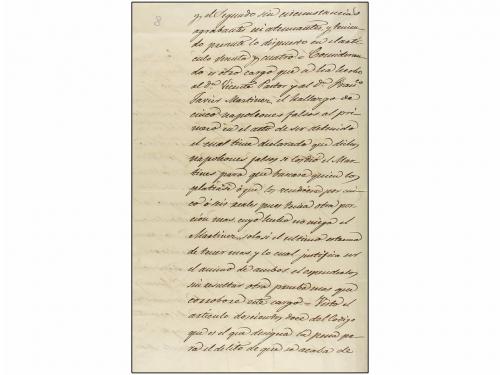 8
y, el segundo sin circunstancias
agrabantes ni atenuantes, y tenien-
do presente lo dispuesto en el arti-
culo setenta y cuatro = Consideran-
do = otro cargo que se ha hecho
al Dn. Vicente Pastor y al Dn. Franco
Javier Martinez, el hallazgo de
cinco napoleones falsos al pri-
mero en el acto de ser detenido
el cual tiene declarado que dichos
napoleones falsos se los dió el Mar-
tinez para que buscara quien los
platease ó que los vendiera por cin-
co ó seis reales pues tenia otra por-
cion mas cuyo hecho no niega el
Martinez, solo si el ultimo estremo
de tener mas y lo cual justifica ser
el animo de ambos el espenderlos,
sin resultar otra prueba mas que
corrobore este cargo = Visto el
articulo doscientos doce del Codigo
que es el que designa la pena pa-
ra el delito de que se acaba de